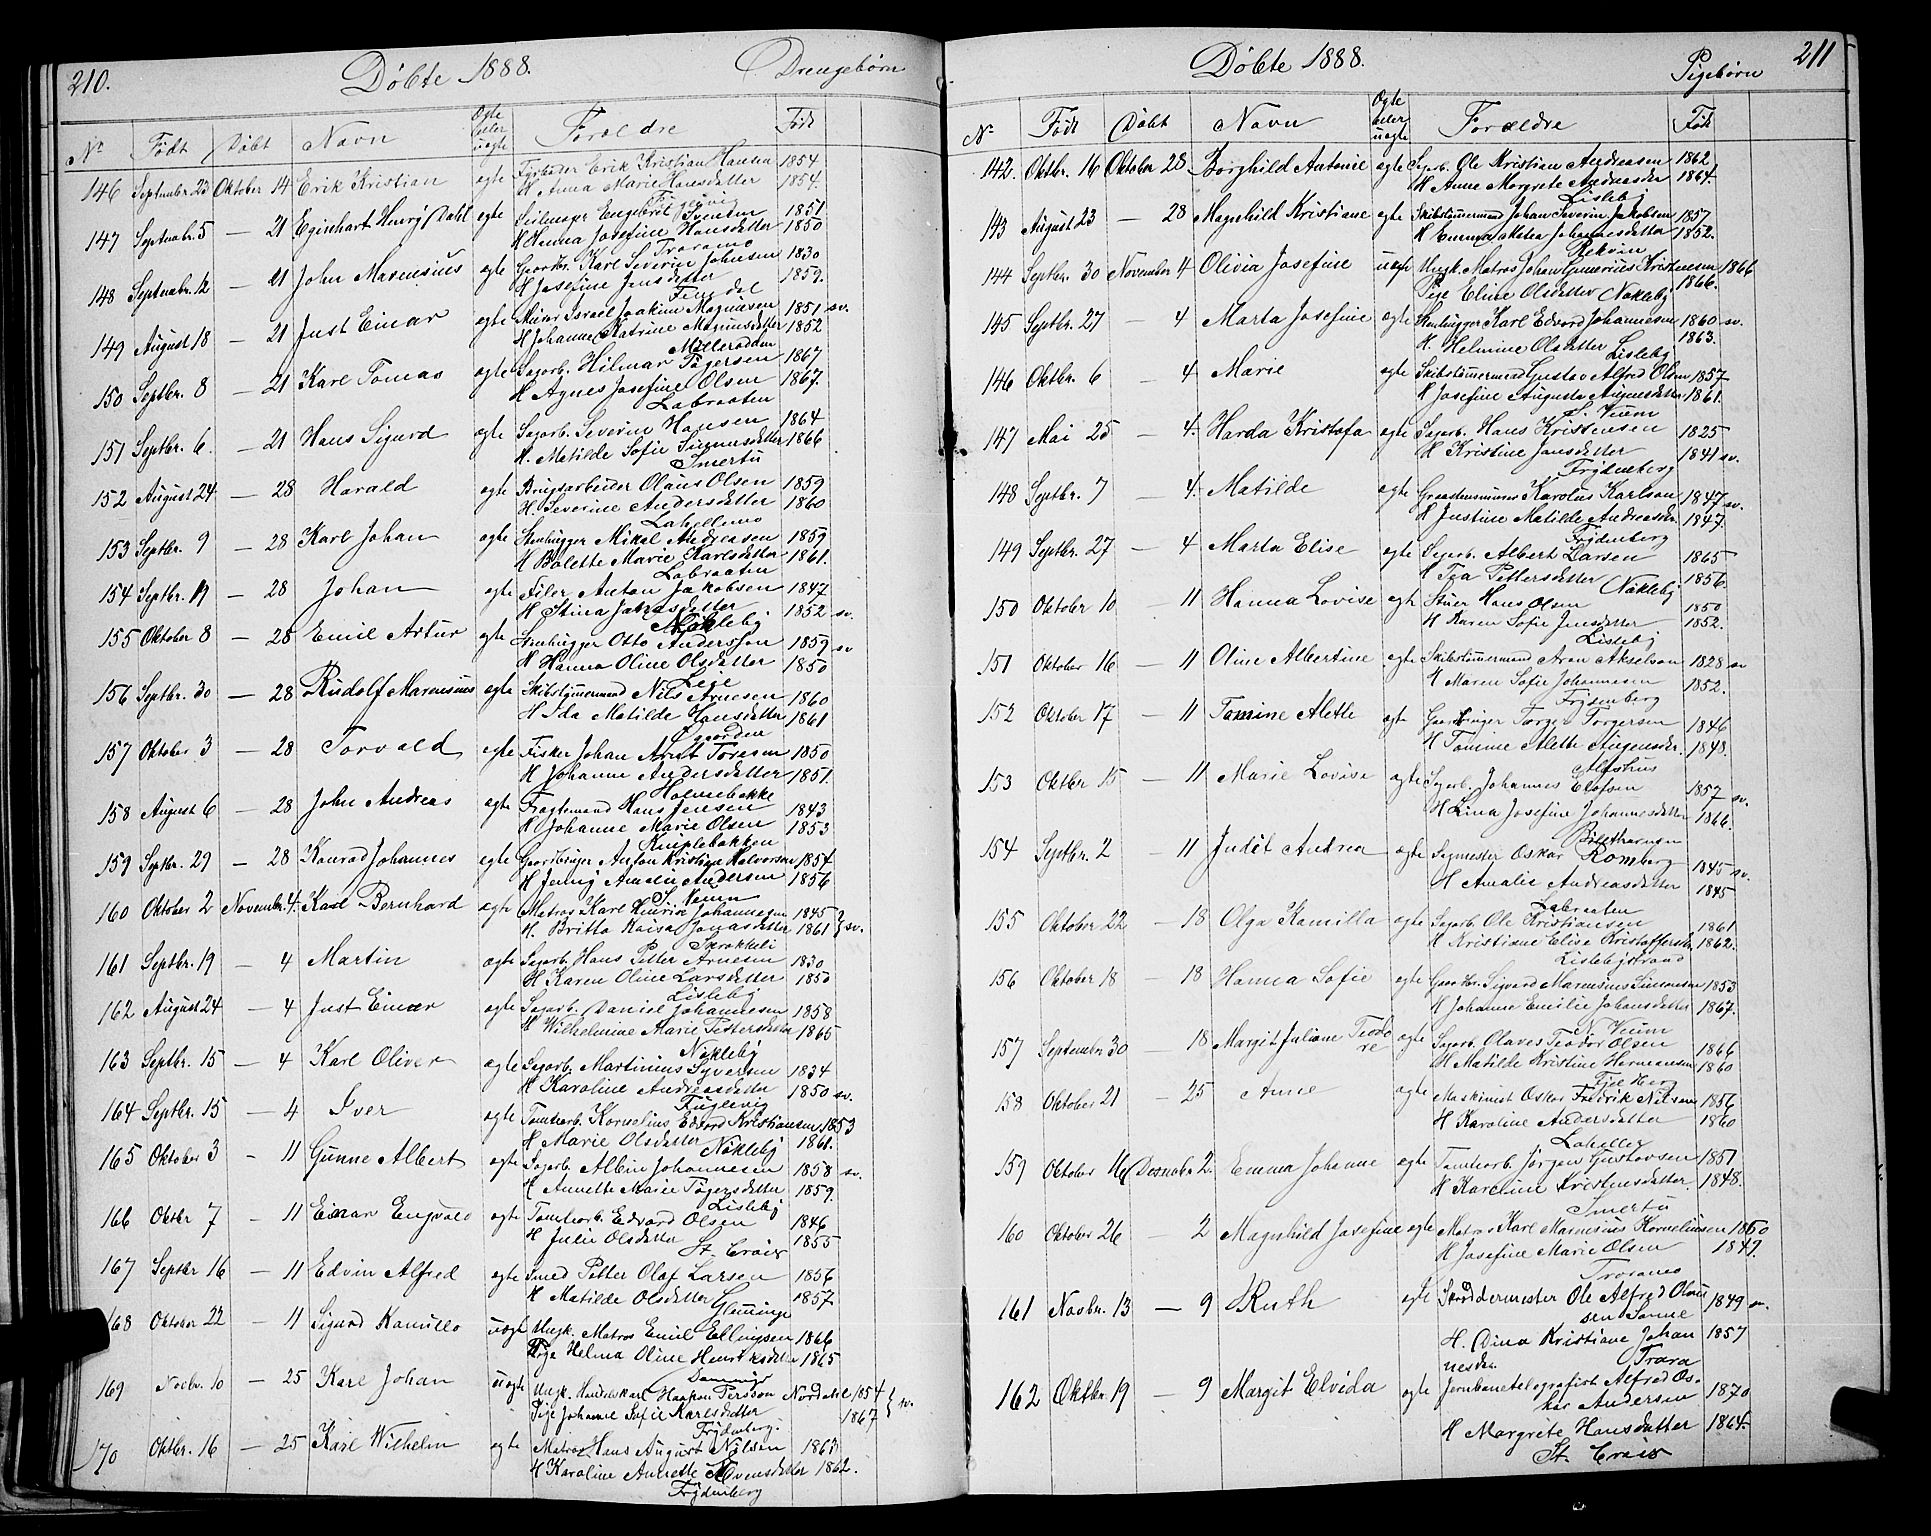 210. Döbte 1888. Drengebørn
No Født Døbt Navn Ægte eller uægte Forældre Født
146 Septembr. 23 Oktober 14 Erik Kristian egte Fyrbøder Erik Kristian Hansen 1854
H Anna Marie Hansdatter 1854.
Fuglevig
147 Septembr. 5 — 21 Eginhart Henry Dahl egte Seilmager Engebret Svensen 1851
H Hanna Josefine Hansdatter 1850
Traramo
148 Septembr. 12 — 21 John Marensius egte Gaardbr. Karl Severin Johnsen 1830
H Josefine Jensdatter 1859.
149 August 18 — 21 Just Einar egte Murer Israel Joakim Magnusen 1851 sv.
H Johanne Katrine Magnusdatter 1852
Mellerødden
150 Septbr. 8 — 21 Karl Tomas egte Sagarb. Hilmar Tøgersen 1867
H Agnes Josefine Olsen 1867.
Labraaten
151 Septbr. 6 — 21 Hans Sigurd egte Sagarb. Severin Hansen 1864
H. Matilde Sofie Gunnersdatter 1866
Smertu
152 August 24 — 28 Harald egte Brugsarbeider Olaus Olsen 1859
H. Severine Andersdatter 1860
Lahellemo
153 Septbr. 9 — 28 Karl Johan egte Stenhugger Mikal Andreasen 1859
H Bolette Marie Karlsdatter 1861.
Labraaten
154 Septbr. 19 — 28 Johan egte Filer Anton Jakobsen 1847
H Stina Jakobsdatter 1852 sv.
Nøkleby
155 Oktober 8 — 28 Emil Artur egte Stenhugger Otto Anderson 1859 sv
H Hanna Oline Olsdatter 1850
Leie
156 Septbr. 30 — 28 Rudolf Marensius egte Skibstømmermand Nils Arnesen 1860
H Ida Matilde Hansdatter 1861
157 Oktober 3 — 28 Torvald egte Fisker Johan Arnt Toresen 1850
H Johanne Andersdatter 1851.
Holmebakke
158 August 6 — 28 John Andreas egte Fragtemand Hans Jensen 1843
H Johanne Marie Olsen 1853
Kniplebakken
159 Septbr. 29 — 28 Konrad Johannes egte Gaardbruger Anton Kristian Halvorsen 1854
H Jenny Amalie Andersen 1856
N. Veum
160 Oktober 2 Novembr. 4. Karl Bernhard egte Matros Karl Henrik Johannesen 1845 } sv.
H. Britta Kaisa Jonasdatter 1861
Skrakkeli
161 Septbr. 19 — 4 Martin egte Sagarb. Hans Petter Arnesen 1830
H Karen Oline Larsdatter 1850
Lisleby
162 August 24 — 4 Just Einar egte Sagarb. Daniel Johannesen 1858
H Wilhelmine Marie Pettersdatter 1865
Nøkleby
163 Septbr. 15 — 4 Karl Oliver egte Sagarb. Martinius Syversen 1834
H Karoline Andreasdatter 1850 sv.
Fuglevig
164 Septbr. 15 — 4 Iver egte Tomtearb. Kornelius Edvard Kristiansen 1853
H Marie Olsdatter 1861.
Nøkleby
165 Oktober 3 — 11 Gunne Albert egte Sagarb. Albin Johannesen 1858 sv.
H Annette Marie Tøgersdatter 1859.
Lisleby
166 Oktbr 7 — 11 Einar Engvald egte Tomtearb. Edvard Olsen 1846
H Julie Olsdatter 1855
St. Croix
167 Septbr 16 — 11 Edvin Alfred egte Smed Petter Olaf Larsen 1856
H Matilde Olsdatter 1857
Glemminge
168 Oktober 22 — 11 Sigurd Kamillo uægte Ungk. Matros Emil Ellingsen 1866
Pige Helma Oline Henriksdatter 1865
169 Novbr. 10 — 25 Karl Johan uægte Ungk. Handelskarl Haagen Persson Nordahl 1854 } sv.
Pige Johanne Sofie Karlsdatter 1867
Frydenberg.
170 Oktbr. 16 — 25 Karl Wilhelm egte Matros Hans August Nilsen 1863
H Karoline Annette Svensdatter 1862.
Frydenberg
Döbte 1888. Pigebørn 211
No Født Døbt Navn Ægte eller uægte Forældre Født
142. Oktbr. 16 Oktober 28 Borghild Antonie egte Sagarb. Ole Kristian Andreasen 1862
H Anne Margrete Andreasdr 1864.
Lisleby
143 August 23 — 28 Magnhild Kristiane egte Skibstømmermand Johan Severin Jakobsen 1857
H Emma Matea Johannesdatter 1852.
Rekvin
144 Septbr. 30 November 4 Olivia Josefine uegte Ungk. Matros Johan Gunerius Kristensen 1866
Pige Eline Olsdatter Nøkleby 1866.
145 Septbr. 27 — 4 Marta Josefine egte Stenhugger Karl Edvard Johannesen 1860 sv.
H. Helmine Olsdatter 1863.
Lisleby
146 Oktbr. 6 — 4 Marie egte Skibstømmermand Gustav Alfred Olsen 1857
H Josefine Augusta Augustdatter 1861.
N. Veum
147 Mai 25 — 4. Harda Kristofa egte Sagarb. Hans Kristensen 1825
H Kristine Jansdatter 1841 sv.
Frydenberg
148 Septbr. 7 — 4. Matilde egte Graastensmurer Karolus Karlson 1847 sv.
H Justine Matilde Andreasdr. 1847.
Frydenberg
149 Septbr. 27 — 4 Marta Elise egte Sagarb. Albert Larsen 1865
H Tea Pettersdatter Nøkleby 1856.
150 Oktober 10 — 11 Hanna Lovise egte Stuer Hans Olsen 1850
H Karen Sofie Jensdatter 1852.
Lisleby
151 Oktober 16 — 11 Oline Albertine egte Skibstømmermand Aron Akselson 1828 sv
H Maren Sofie Johannesen 1852.
Frydenberg
152 Oktober 17 — 11 Tomine Alette egte Gaardbruger Torger Torgersen 1846
H Tomine Alette Augensdr. 1848.
Alfshus
153 Oktbr 15 — 11 Marie Lovise egte Sagarb. Johannes Elofsen 1857 sv.
H Lina Josefine Johannesdatter 1866.
154 Septbr. 2 — 11 Judit Andrea egte Sagmester Oskar Romberg 1845 sv.
H Amalie Andreasdatter 1845
Labraaten
155 Oktober 22 — 18 Olga Kamilla egte Sagarb. Ole Kristiansen 1861
H Kristiane Elise Kristoffersdr. 1862.
Lislebystrand
156 Oktober 18 — 18 Hanna Sofie egte Gaardbr. Sigvard Marensius Simonsen 1853
H Johanne Emilie Johansdatter 1867.
N. Veum
157 Septembr. 30 — 18 Margit Juliane Teodore egte Sagarb. Olaves Teodor Olsen 1866
H Matilde Kristine Hermansen 1860
Fjeld Berg
158 Oktober 21 — 25 Anne egte Maskinist Oskar Fredrik Nilsen 1856
H Karoline Andersdatter 1860
Lahelle
159 Oktober 16 Desember 2. Emma Johanne egte Tomtearb. Jørgen Gustavsen 1851
H Karoline Kristensdatter 1848.
Smertu
160 Oktober 26 — 2 Magnhild Josefine egte Matros Karl Marensius Korneliussen 1850
H Josefine Marie Olsen 1849.
Traramo
161 Novbr. 13 — 9 Ruth egte Skræddermester Ole Alfred Olaus-
sen Sanne 1849 sv.
H. Dina Kristiane Johan- 1857
nesdr. Trara
162 Oktbr. 19 — 9 Margit Elvida egte Jernbanetelegrafist Alfred Os-
kar Andersen 1870
H Margrete Hansdatter 1864.
St. Croix